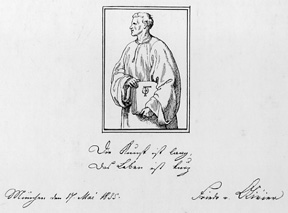 Die Kunst ist lang,
Das Leben ist kurz
München den 17 Mai 1835.
Friedr. v. Olivier